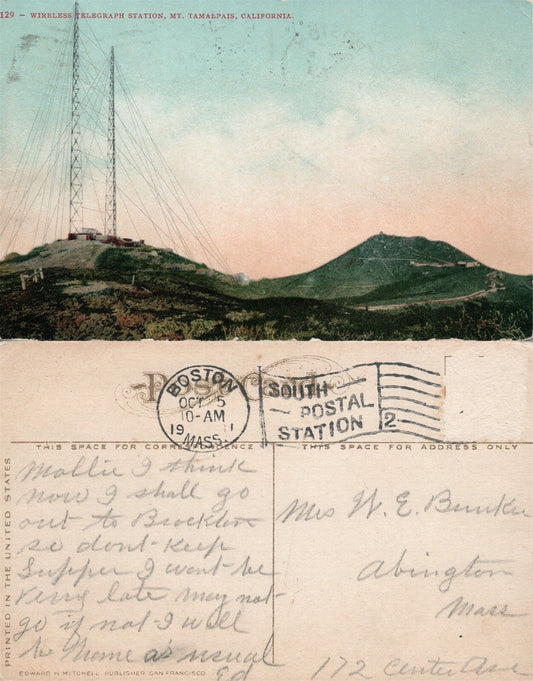 129 - WIRELESS TELEGRAPH STATION, MT. TAMALPAIS, CALIFORNIA.
Post Card
BOSTON
OCT 5
10-AM
19 1
MASS.
SOUTH
POSTAL
STATION
2
THIS SPACE FOR CORRESPONDENCE
THIS SPACE FOR ADDRESS ONLY
PRINTED IN THE UNITED STATES
Mollie I think
now I shall go
out to Brockton
so dont keep
Supper I wont be
very late may not
go if not I will
be home as usual
Ed
EDWARD H. MITCHELL, PUBLISHER, SAN FRANCISCO
Mrs W. E. Bunker
Abington
Mass
172 Center Ave